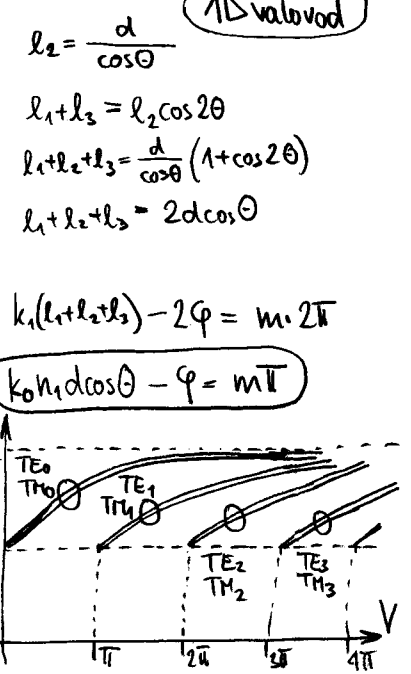 1D valovod
l₂ = d/cosθ
l₁+l₃ = l₂cos2θ
l₁+l₂+l₃ = d/cosθ (1+cos2θ)
l₁+l₂+l₃ = 2dcosθ
k₁(l₁+l₂+l₃) − 2φ = m·2π
k₀n₁dcosθ − φ = mπ
TE₀ TE₁
TM₀ TM₁
TE₂ TE₃
TM₂ TM₃
V
π 2π 3π 4π